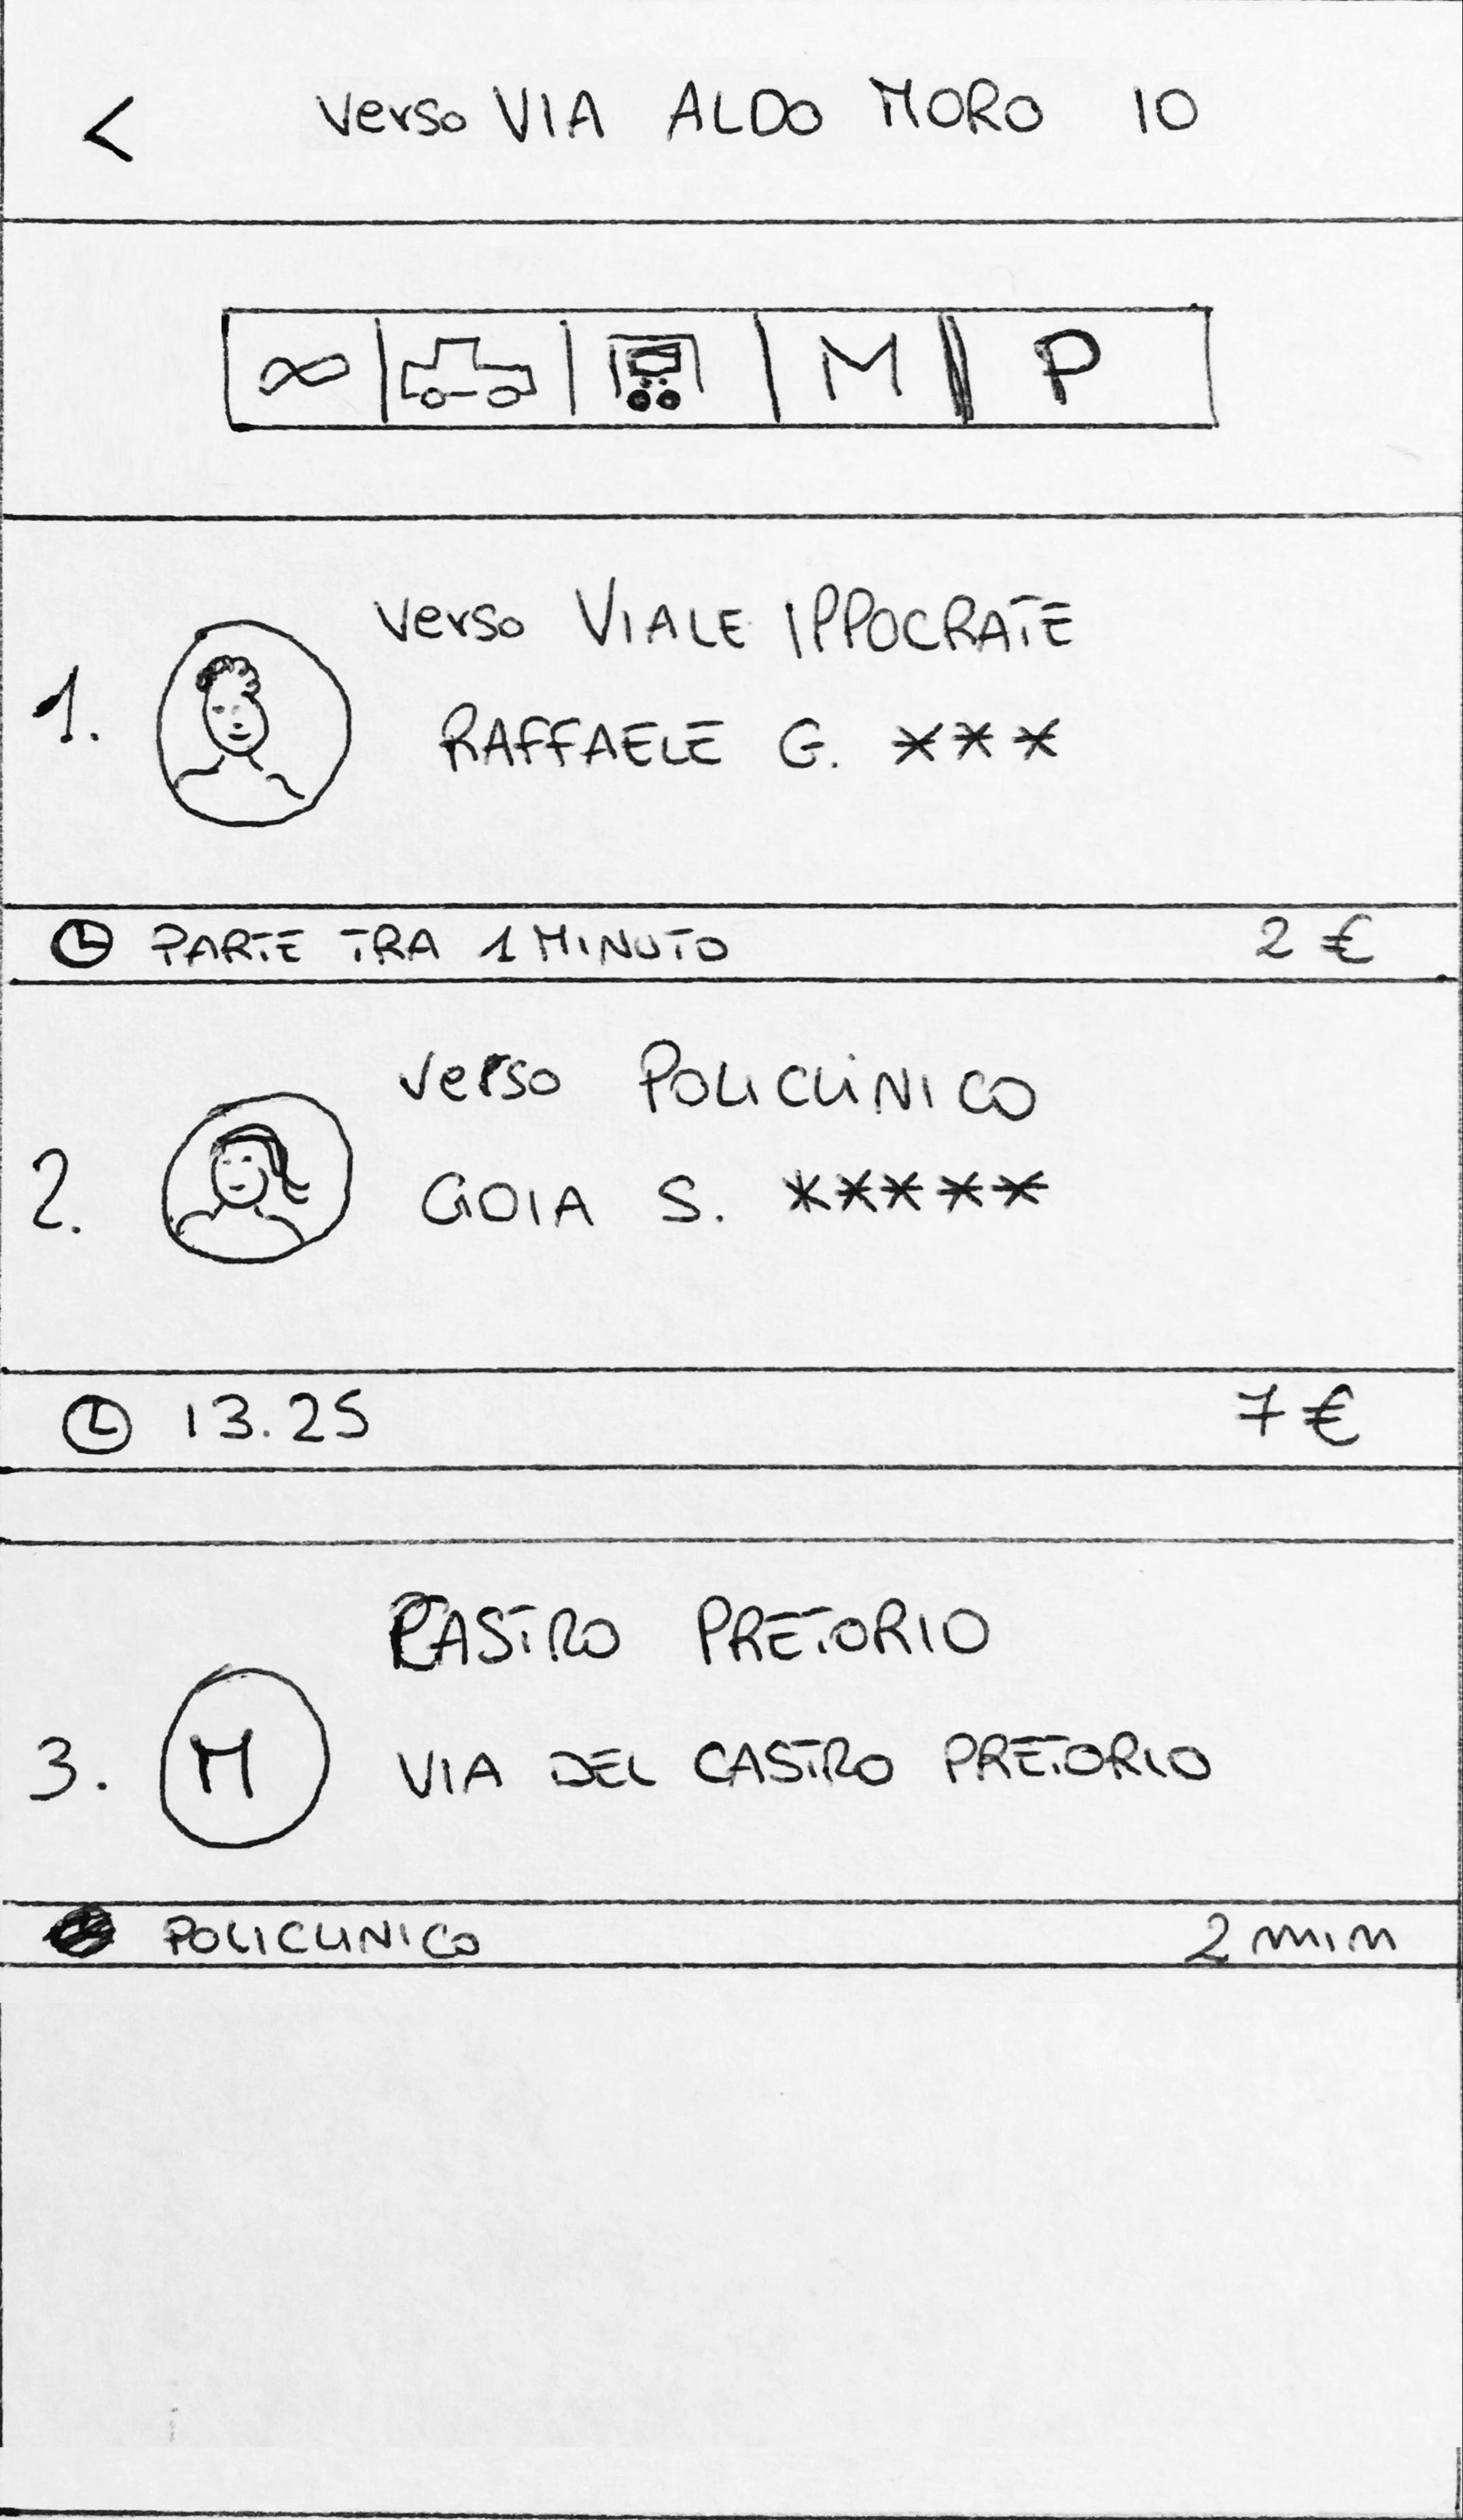 < verso VIA ALDO MORO 10
∞ M P
verso VIALE IPPOCRATE
1. RAFFAELE G. ***
PARTE TRA 1 MINUTO 2 €
verso POLICLINICO
2. GOIA S. *****
13.25 7 €
CASTRO PRETORIO
3. M VIA DEL CASTRO PRETORIO
POLICLINICO 2 min